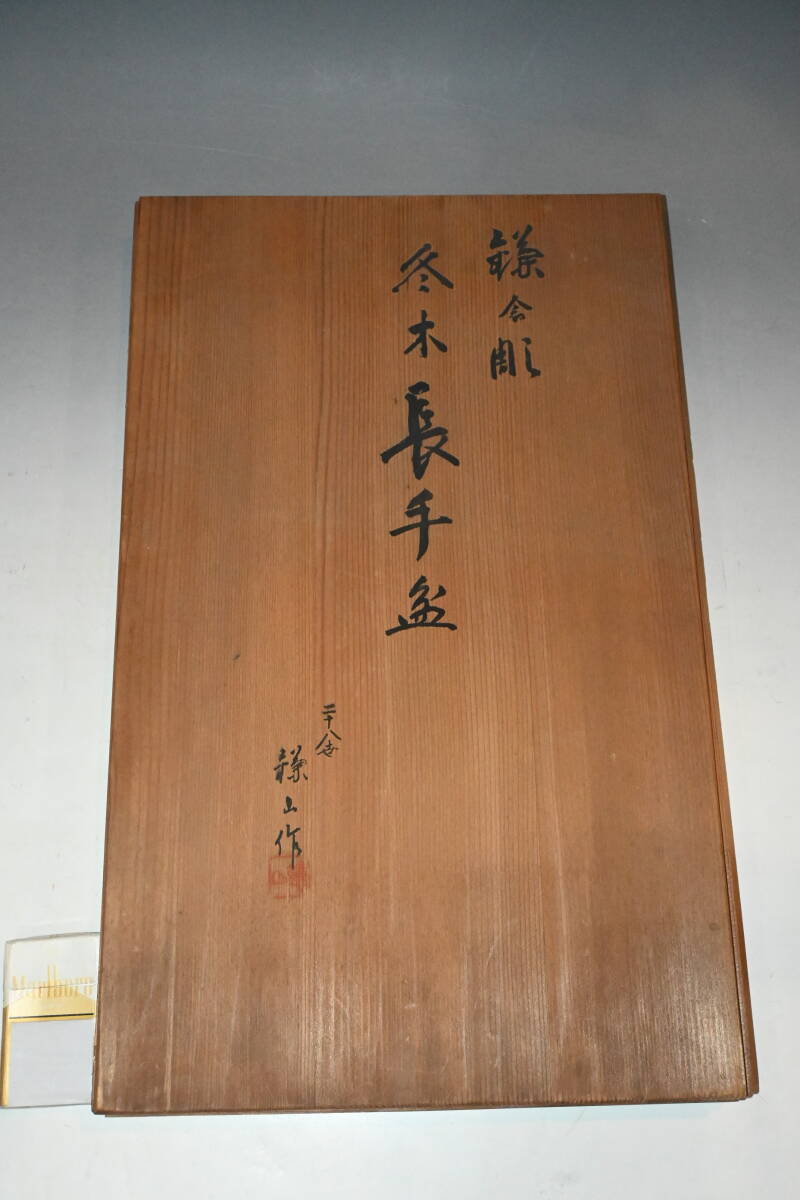 鎌倉彫
冬木長手盆
二十八世
鎌山作
Marlboro